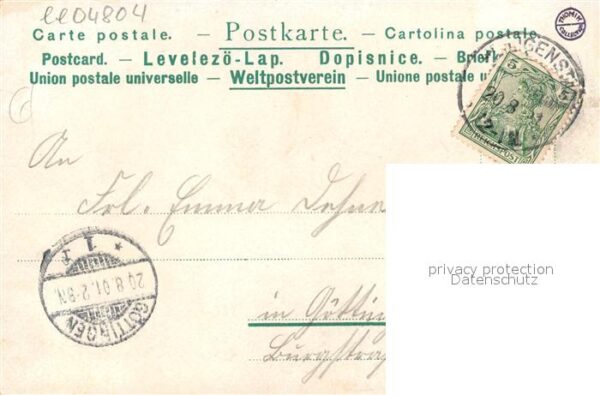 ee04804
Carte postale. — Postkarte. — Cartolina postale.
Postcard. — Levelezö-Lap. Dopisnice. — Brief
Union postale universelle — Weltpostverein — Unione postale u
IGENST
20 8
5
An
Frl. Emma
GÖTTINGEN
20.8.01.2-3N.
* 1 I
in Götting
Burgstra
privacy protection
Datenschutz